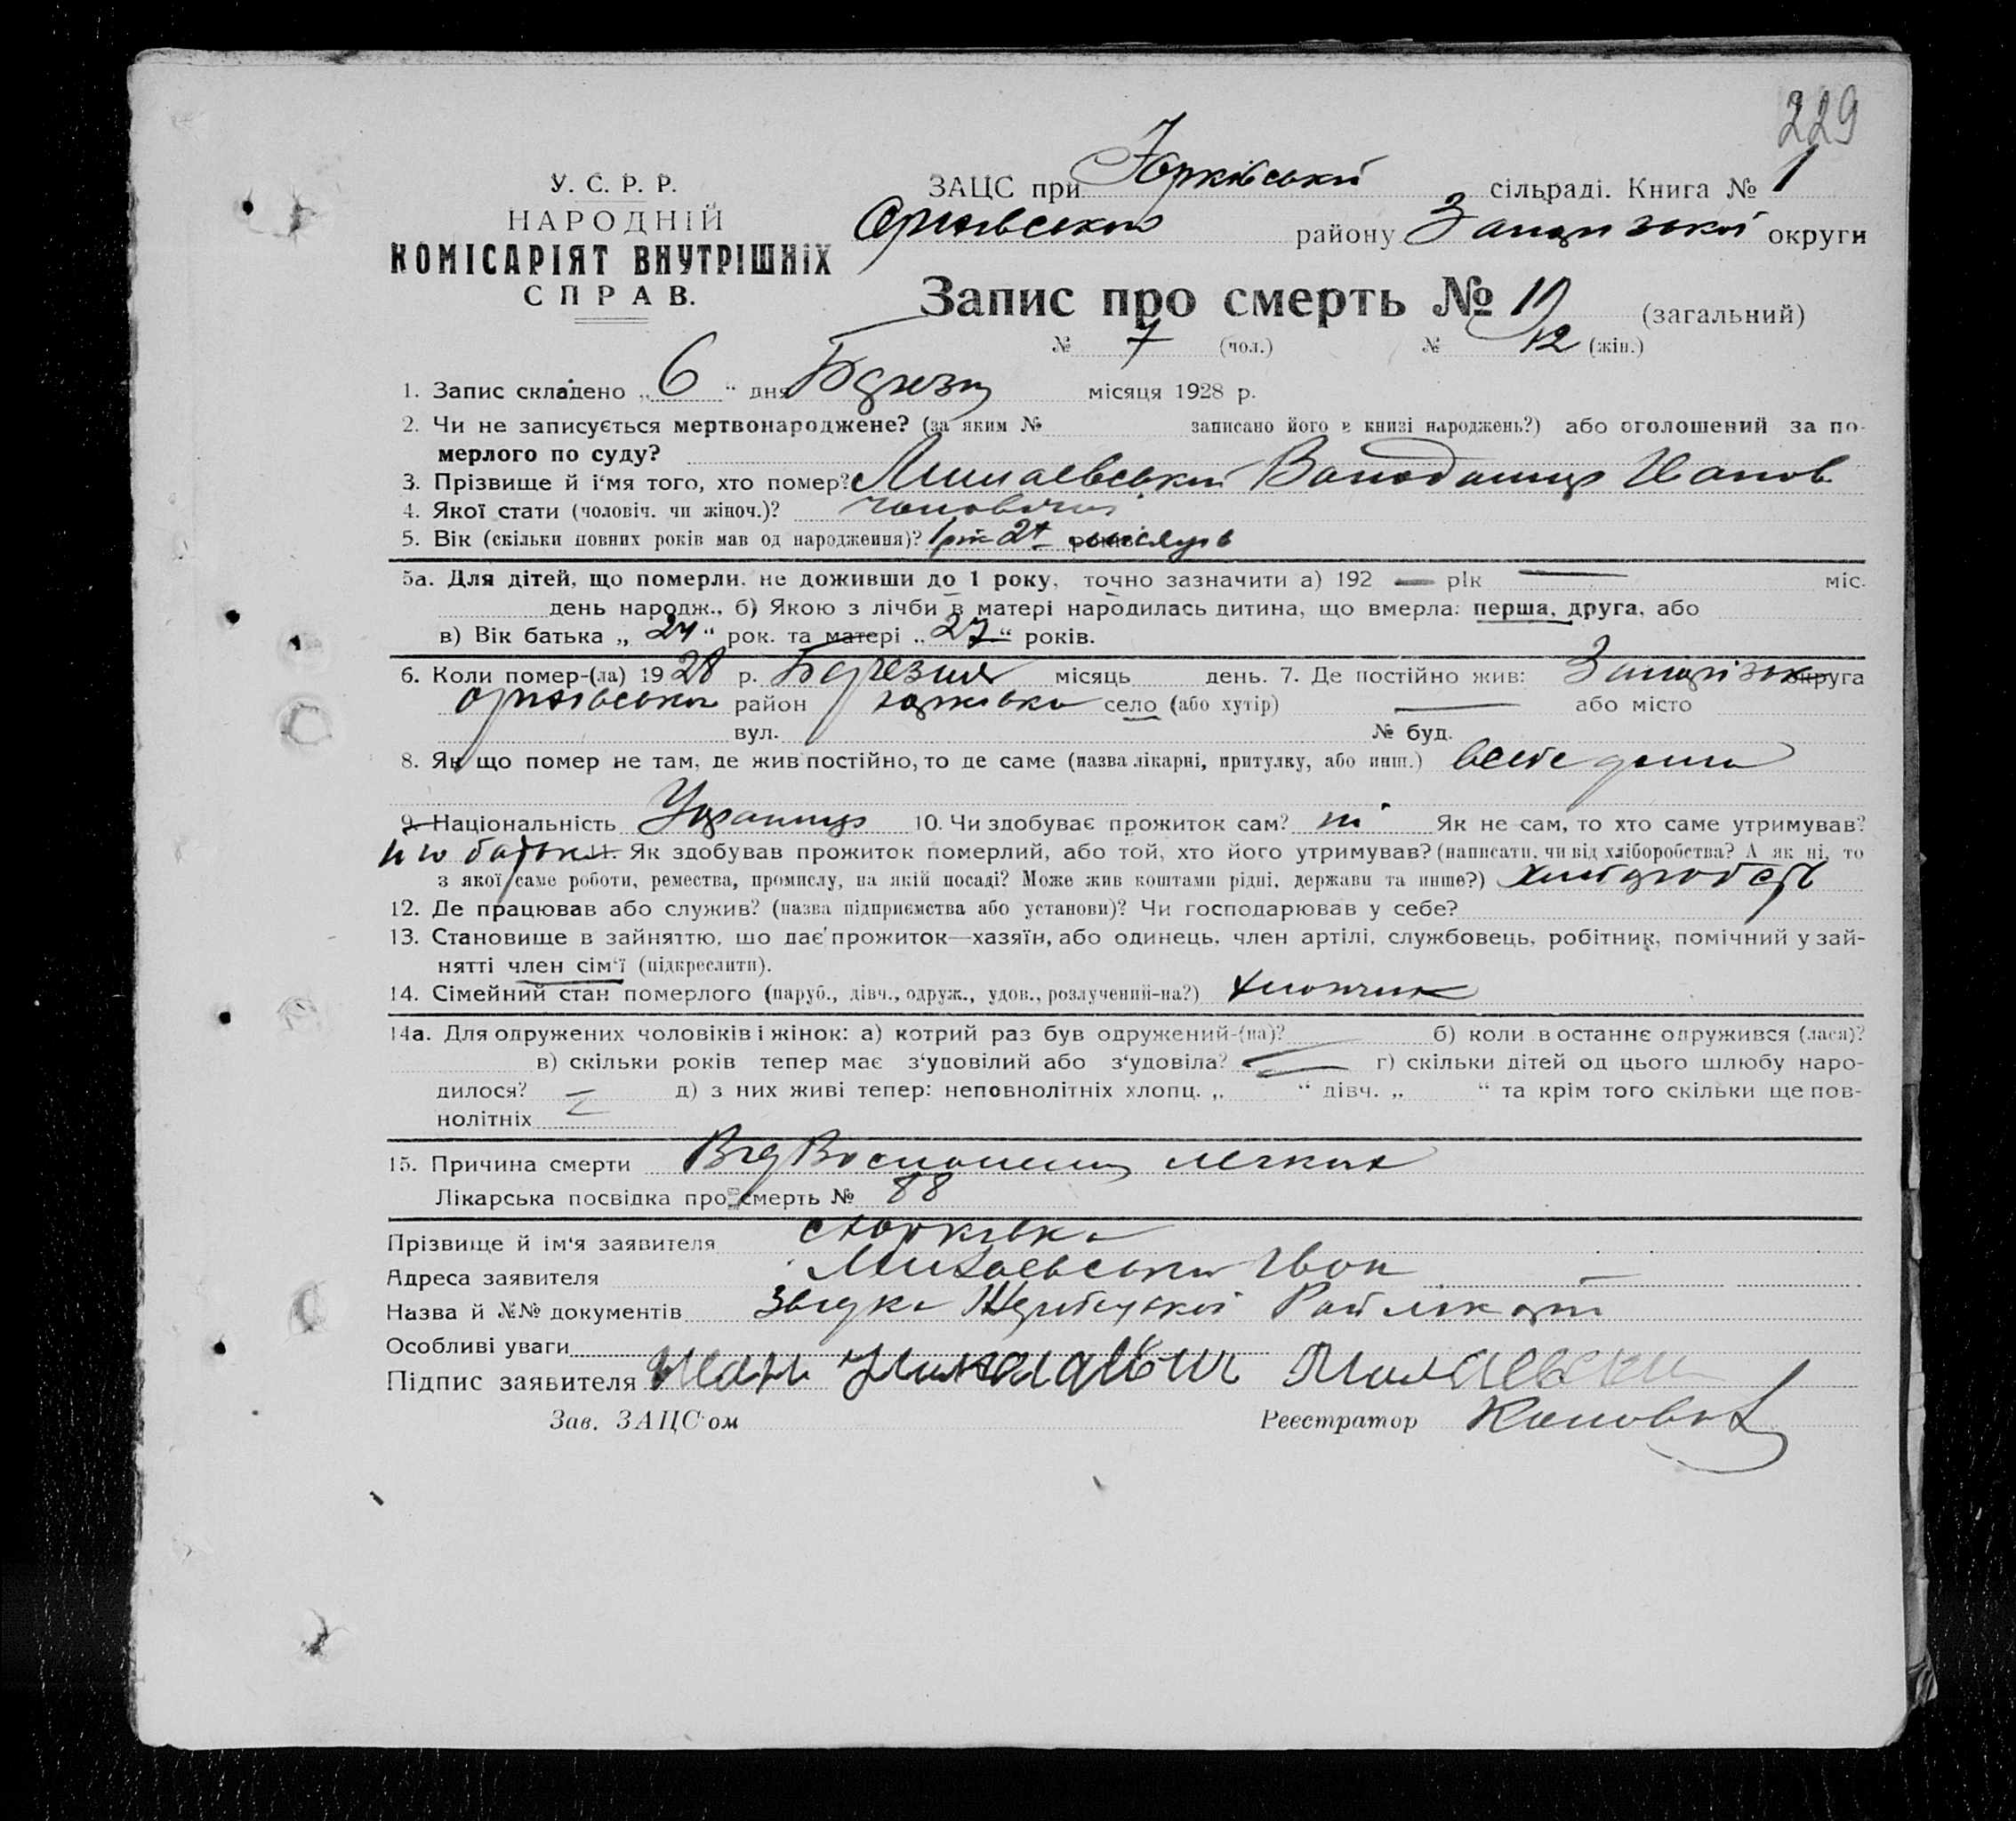 229
У. С. Р. Р.
НАРОДНІЙ
КОМІСАРІЯТ ВНУТРІШНІХ
СПРАВ.
ЗАЦС при Юрківській сільраді. Книга № 1
Оріхівського району Запорізької округи
Запис про смерть № (загальний)
№ 7 (чол.) № 12 (жін.)
1. Запис складено „ 6 “ дня Березня місяця 1928 р.
2. Чи не записується мертвонароджене? (за яким № записано його в книзі народжень?) або оголошений за по-
мерлого по суду?
3. Прізвище й і'мя того, хто помер? Володимир Иванов
4. Якої стати (чоловіч. чи жіноч.)? чоловічий
5. Вік (скільки повних років мав од народження)? 1 рік 2 місяців
5а. Для дітей, що померли, не доживши до 1 року, точно зазначити а) 192 — рік — міс.
день народж., б) Якою з лічби в матері народилась дитина, що вмерла: перша, друга, або
в) Вік батька „ “ рок. та матері „ 27 “ років.
6. Коли помер-(ла) 1928 р. Березня місяць день. 7. Де постійно жив: округа
район Юрківка село (або хутір) — або місто
вул. № буд.
8. Як що помер не там, де жив постійно, то де саме (назва лікарні, притулку, або инш.) дома
9. Національність Українець 10. Чи здобуває прожиток сам? ні Як не сам, то хто саме утримував?
батьки 11. Як здобував прожиток померлий, або той, хто його утримував? (написати, чи від хліборобства? А як ні, то
з якої саме роботи, ремества, промислу, на якій посаді? Може жив коштами рідні, держави та инше?)
12. Де працював або служив? (назва підприємства або установи)? Чи господарював у себе?
13. Становище в зайняттю, що дає прожиток—хазяїн, або одинець, член артілі, службовець, робітник, помічний у зай-
нятті член сім'ї (підкреслити).
14. Сімейний стан померлого (паруб., дівч., одруж., удов., розлучений-на?) хлопчик
14а. Для одружених чоловіків і жінок: а) котрий раз був одружений-(на)? б) коли в останнє одружився (лася)?
в) скільки років тепер має з'удовілий або з'удовіла? — г) скільки дітей од цього шлюбу наро-
дилося? — д) з них живі тепер: неповнолітніх хлопц. „ “ дівч. „ “ та крім того скільки ще пов-
нолітніх
15. Причина смерти Від Воспаления легких
Лікарська посвідка про смерть № 88
Прізвище й ім'я заявителя с Юрківка
Адреса заявителя Иван
Назва й №№ документів
Особливі уваги
Підпис заявителя Иван
Зав. ЗАЦС'ом Реєстратор